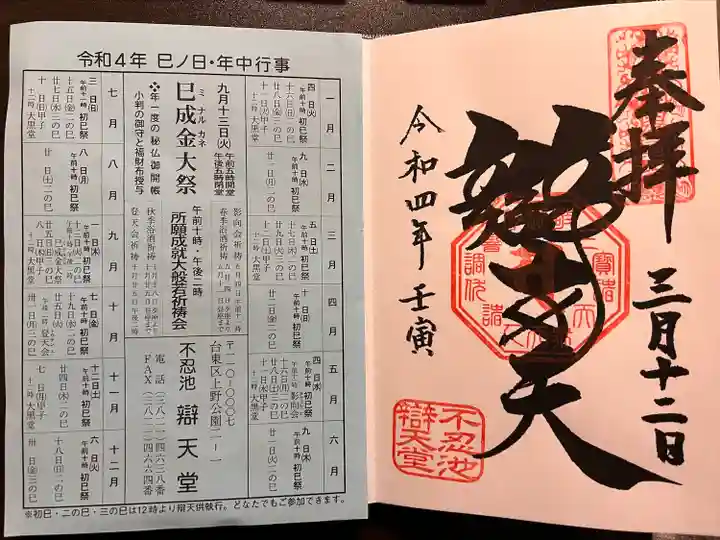 令和4年 巳ノ日・年中行事
一月
四日(火)
午前十時 初巳祭
十六日(日)二の巳
廿八日(金)三の巳
十一日(火)甲子
十二時 大黒堂
二月
九日(水)
午前十時 初巳祭
廿一日(月)二の巳
三月
五日(土)
午前十時 初巳祭
十七日(木)二の巳
廿九日(火)三の巳
十二日(土)甲子
十二時 大黒堂
四月
十日(日)
午前十時 初巳祭
廿二日(金)二の巳
五月
四日(水)
午前十時 初巳祭
十六日(月)二の巳
影向会
廿八日(土)三の巳
十二時 大黒堂
六月
九日(木)
午前十時 初巳祭
廿一日(火)二の巳
九月十三日(火) 午前五時開堂 午後五時閉堂
ミ ナル カネ
巳成金大祭
※年一度の秘仏御開帳
小判の御守と福財布授与
影向会祈祷
春季浴酒祈祷
午前十時・午後二時
所願成就大般若祈祷会
秋季浴酒祈祷
聖天会祈祷
〒一一〇-〇〇〇七
台東区上野公園二-一
不忍池 辯天堂
電話(三八二一)四六三八番
FAX(三八二一)四六六四番
七月
三日(日)
午前十時 初巳祭
十五日(金)二の巳
廿七日(水)三の巳
十日(日)甲子
十二時 大黒堂
八月
八日(月)
午前十時 初巳祭
廿日(土)二の巳
九月
一日(木)
午前十時 初巳祭
十三日(火)二の巳
巳成金大祭
廿五日(日)三の巳
八日(木)甲子
十二時 大黒堂
十月
七日(金)
午前十時 初巳祭
十九日(水)二の巳
卅一日(月)三の巳
十一月
十二日(土)
午前十時 初巳祭
廿四日(木)二の巳
七日(月)甲子
十二時 大黒堂
十二月
六日(火)
午前十時 初巳祭
十八日(日)二の巳
卅日(金)三の巳
※初巳・二の巳・三の巳は12時より辯天供執行。どなたでもご参加できます。
奉拝
三月十二日
辯才天
令和四年 壬寅
不忍池
辯天堂